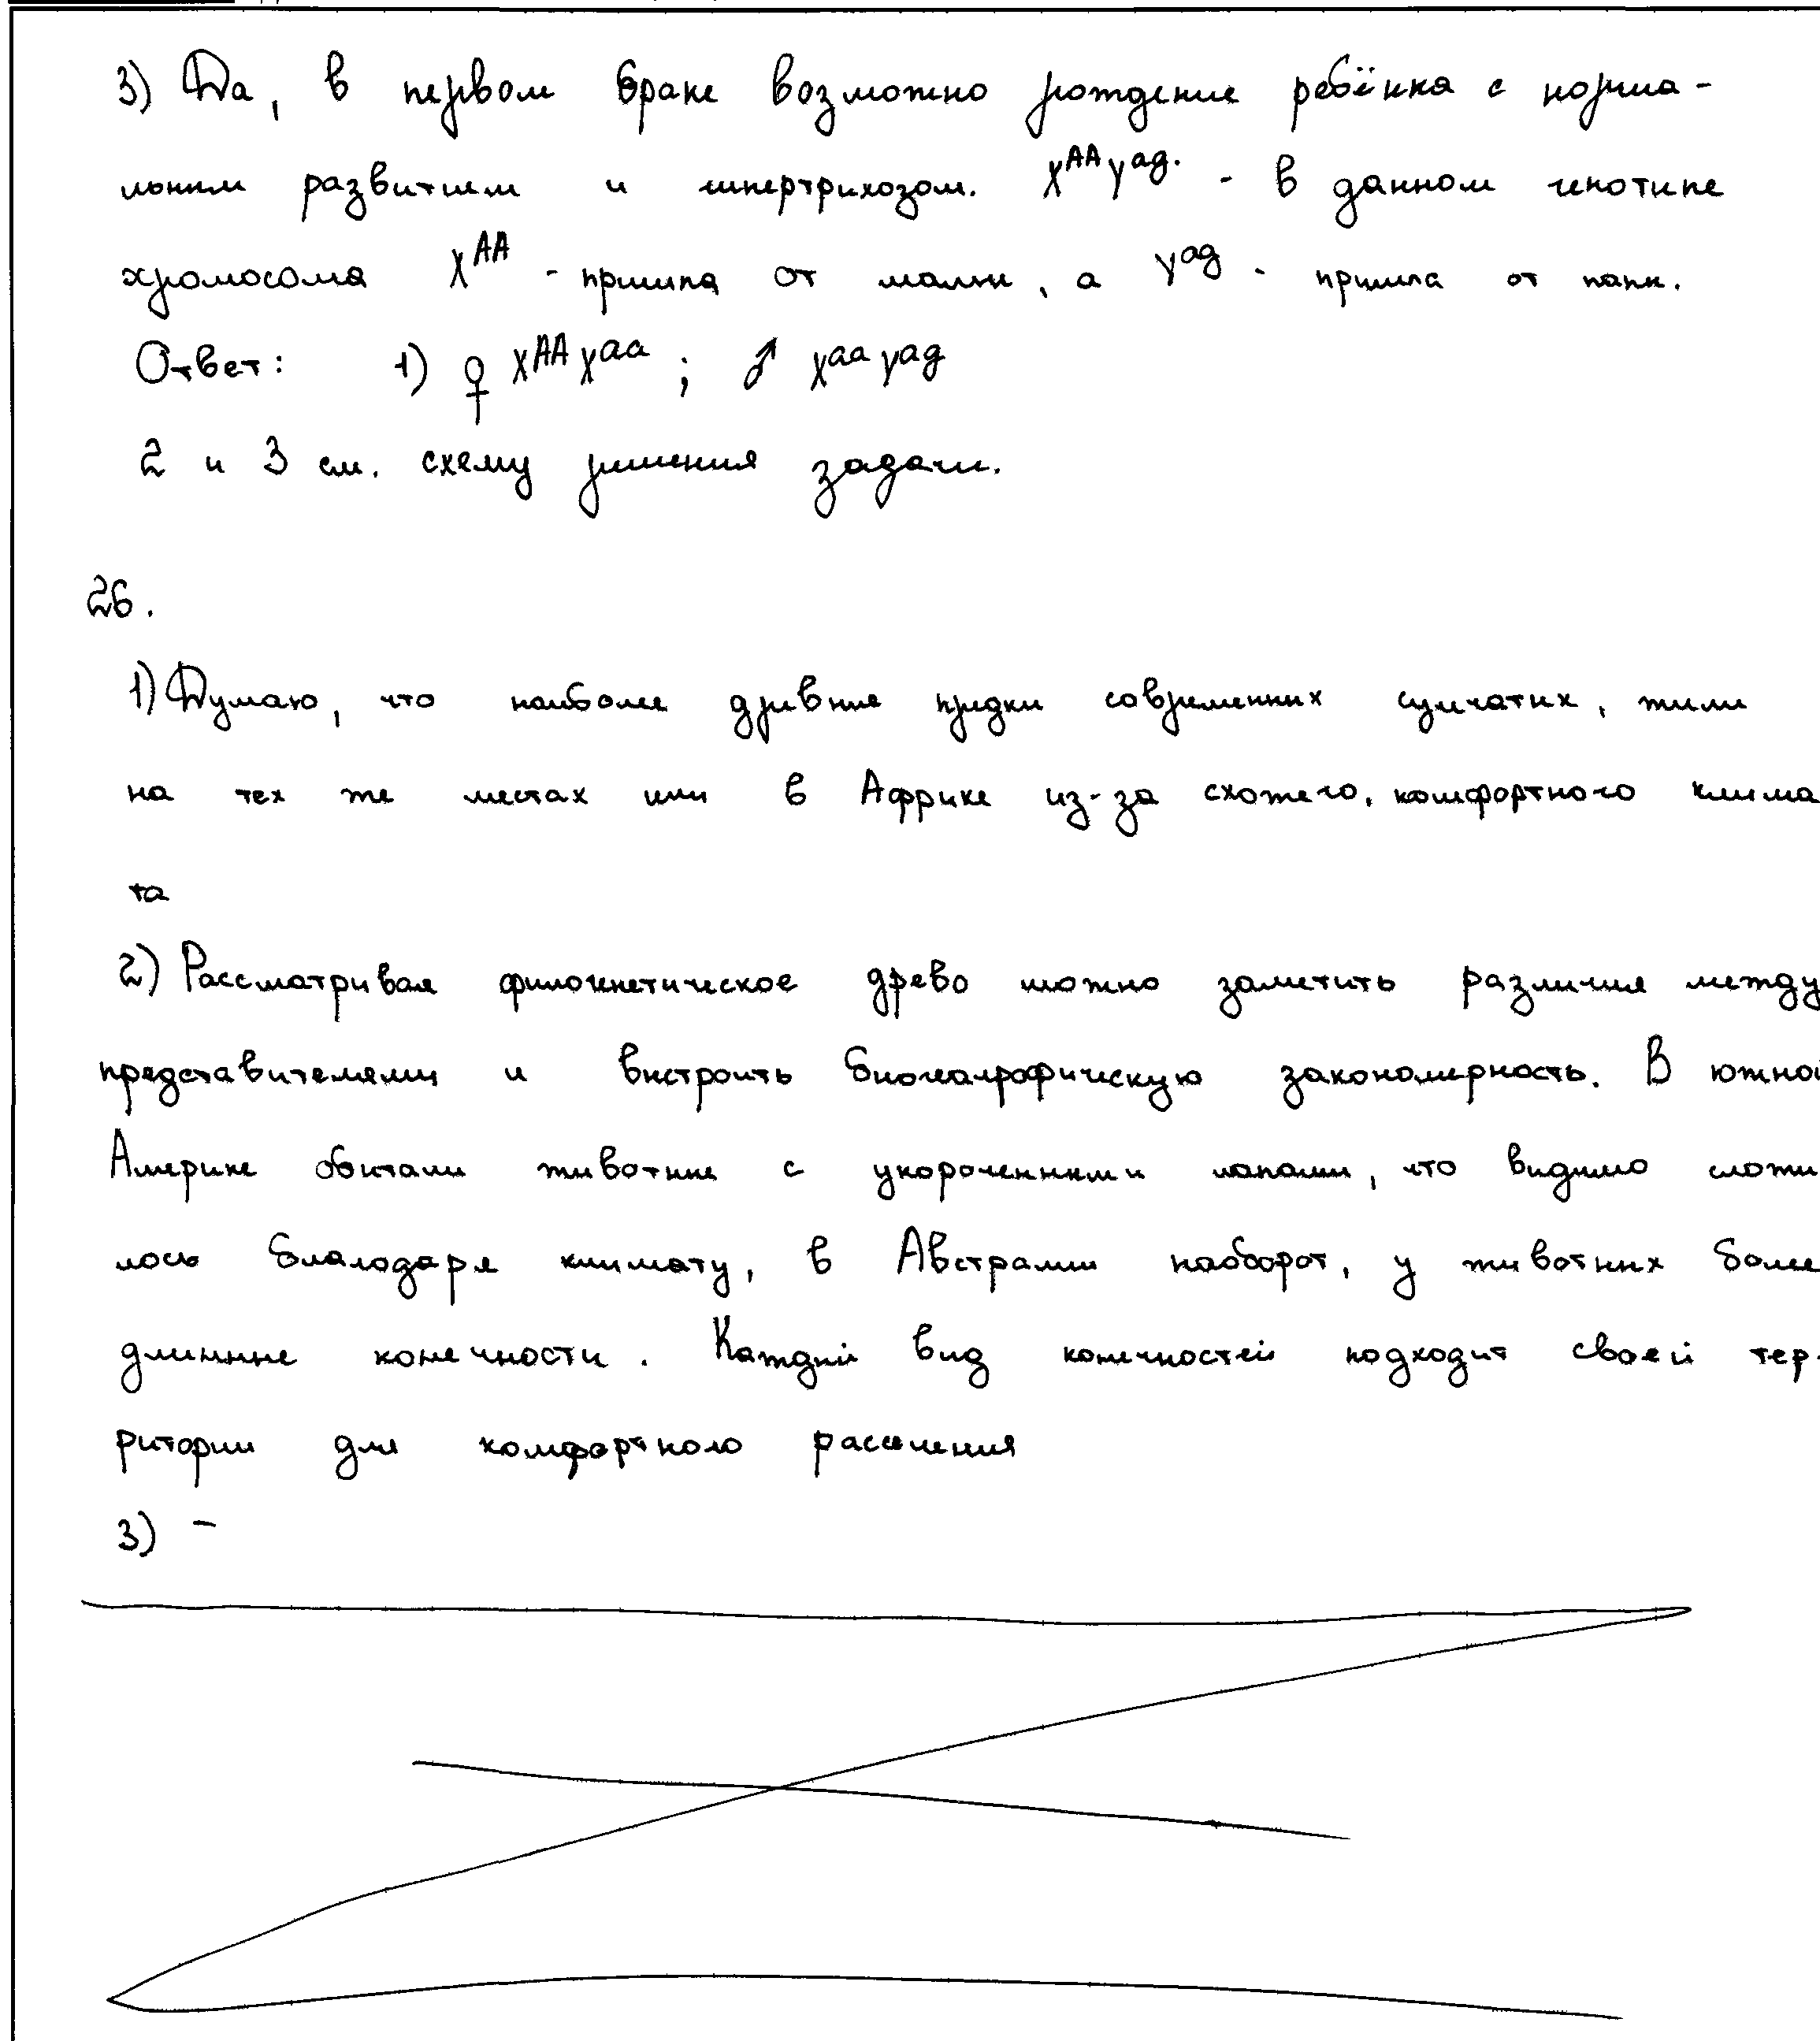 3) Да, в первом браке возможно рождение ребёнка с норма-
льным развитием и гипертрихозом. X^AA Y^ад. - в данном генотипе
хромосома X^AA - пришла от мамы, а Y^ад - пришла от папы.
Ответ: 1) ♀ X^AA X^аа ; ♂ X^аа Y^ад
2 и 3 см. схему решения задачи.
26.
1) Думаю, что наиболее древние предки современных сумчатых, жили
на тех же местах или в Африке из-за схожего, комфортного клима
та
2) Рассматривая филогенетическое древо можно заметить различия между
представителями и выстроить биогеаграфическую закономерность. В южной
Америке обитали животные с укороченными лапами, что видимо сложи
лось благодаря климату, в Австралии наоборот, у животных более
длинные конечности. Каждый вид конечностей подходит своей тер-
ритории для комфортного расселения
3) -